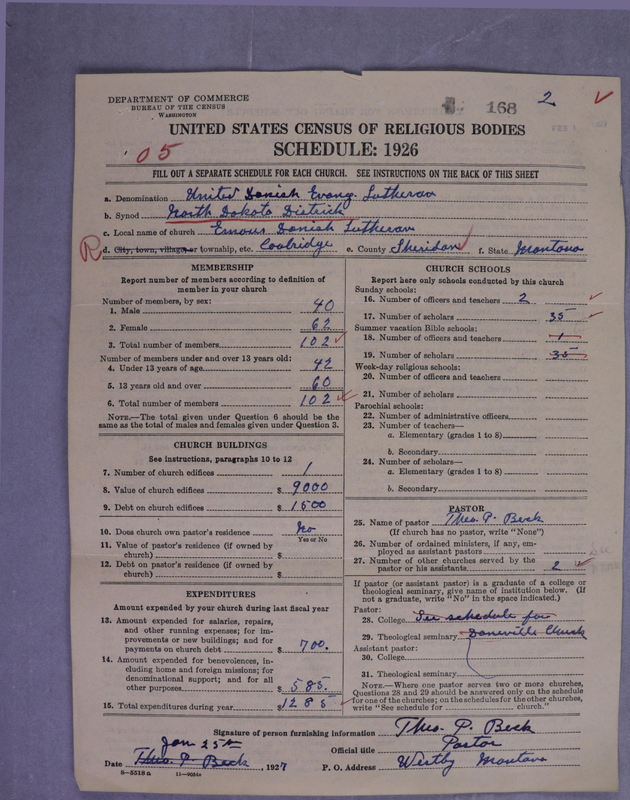 DEPARTMENT OF COMMERCE
BUREAU OF THE CENSUS
WASHINGTON
168 2
UNITED STATES CENSUS OF RELIGIOUS BODIES
05
SCHEDULE: 1926
FILL OUT A SEPARATE SCHEDULE FOR EACH CHURCH. SEE INSTRUCTIONS ON THE BACK OF THIS SHEET
a. Denomination United Danish Evang. Lutheran
b. Synod North Dakota District
c. Local name of church Emaus Danish Lutheran
R d. City, town, village, or township, etc. Coolridge e. County Sheridan f. State Montana
MEMBERSHIP
Report number of members according to definition of
member in your church
Number of members, by sex:
1. Male 40
2. Female 62
3. Total number of members 102
Number of members under and over 13 years old:
4. Under 13 years of age 42
5. 13 years old and over 60
6. Total number of members 102
NOTE.—The total given under Question 6 should be
same as the total of males and females given under Question 3.
CHURCH BUILDINGS
See instructions, paragraphs 10 to 12
7. Number of church edifices 1
8. Value of church edifices $ 9000
9. Debt on church edifices $ 1500
10. Does church own pastor's residence No
Yes or No
11. Value of pastor's residence (if owned by
church) $
12. Debt on pastor's residence (if owned by
church) $
EXPENDITURES
Amount expended by your church during last fiscal year
13. Amount expended for salaries, repairs,
and other running expenses; for im-
provements or new buildings; and for
payments on church debt $ 700.
14. Amount expended for benevolences, in-
cluding home and foreign missions; for
denominational support; and for all
other purposes $ 585.
15. Total expenditures during year $ 1285
CHURCH SCHOOLS
Report here only schools conducted by this church
Sunday schools:
16. Number of officers and teachers 2
17. Number of scholars 35
Summer vacation Bible schools:
18. Number of officers and teachers 1
19. Number of scholars 35
Week-day religious schools:
20. Number of officers and teachers
21. Number of scholars
Parochial schools:
22. Number of administrative officers
23. Number of teachers—
a. Elementary (grades 1 to 8)
b. Secondary
24. Number of scholars—
a. Elementary (grades 1 to 8)
b. Secondary
PASTOR
25. Name of pastor Theo. P. Beck
(If church has no pastor, write "None")
26. Number of ordained ministers, if any, em-
ployed as assistant pastors
27. Number of other churches served by the
pastor or his assistants 2
If pastor (or assistant pastor) is a graduate of a college or
theological seminary, give name of institution below. (If
not a graduate, write "No" in the space indicated.)
Pastor:
28. College See schedule for
29. Theological seminary Daneville Church
Assistant pastor:
30. College
31. Theological seminary
NOTE.—Where one pastor serves two or more churches,
Questions 28 and 29 should be answered only on the schedule
for one of the churches; on the schedules for the other churches,
write "See schedule for church."
Signature of person furnishing information Theo. P. Beck
Jan 25th
Official title Pastor
Date Theo. P. Beck, 1927 P. O. Address Westby Montana
8—5518 a 11—9034